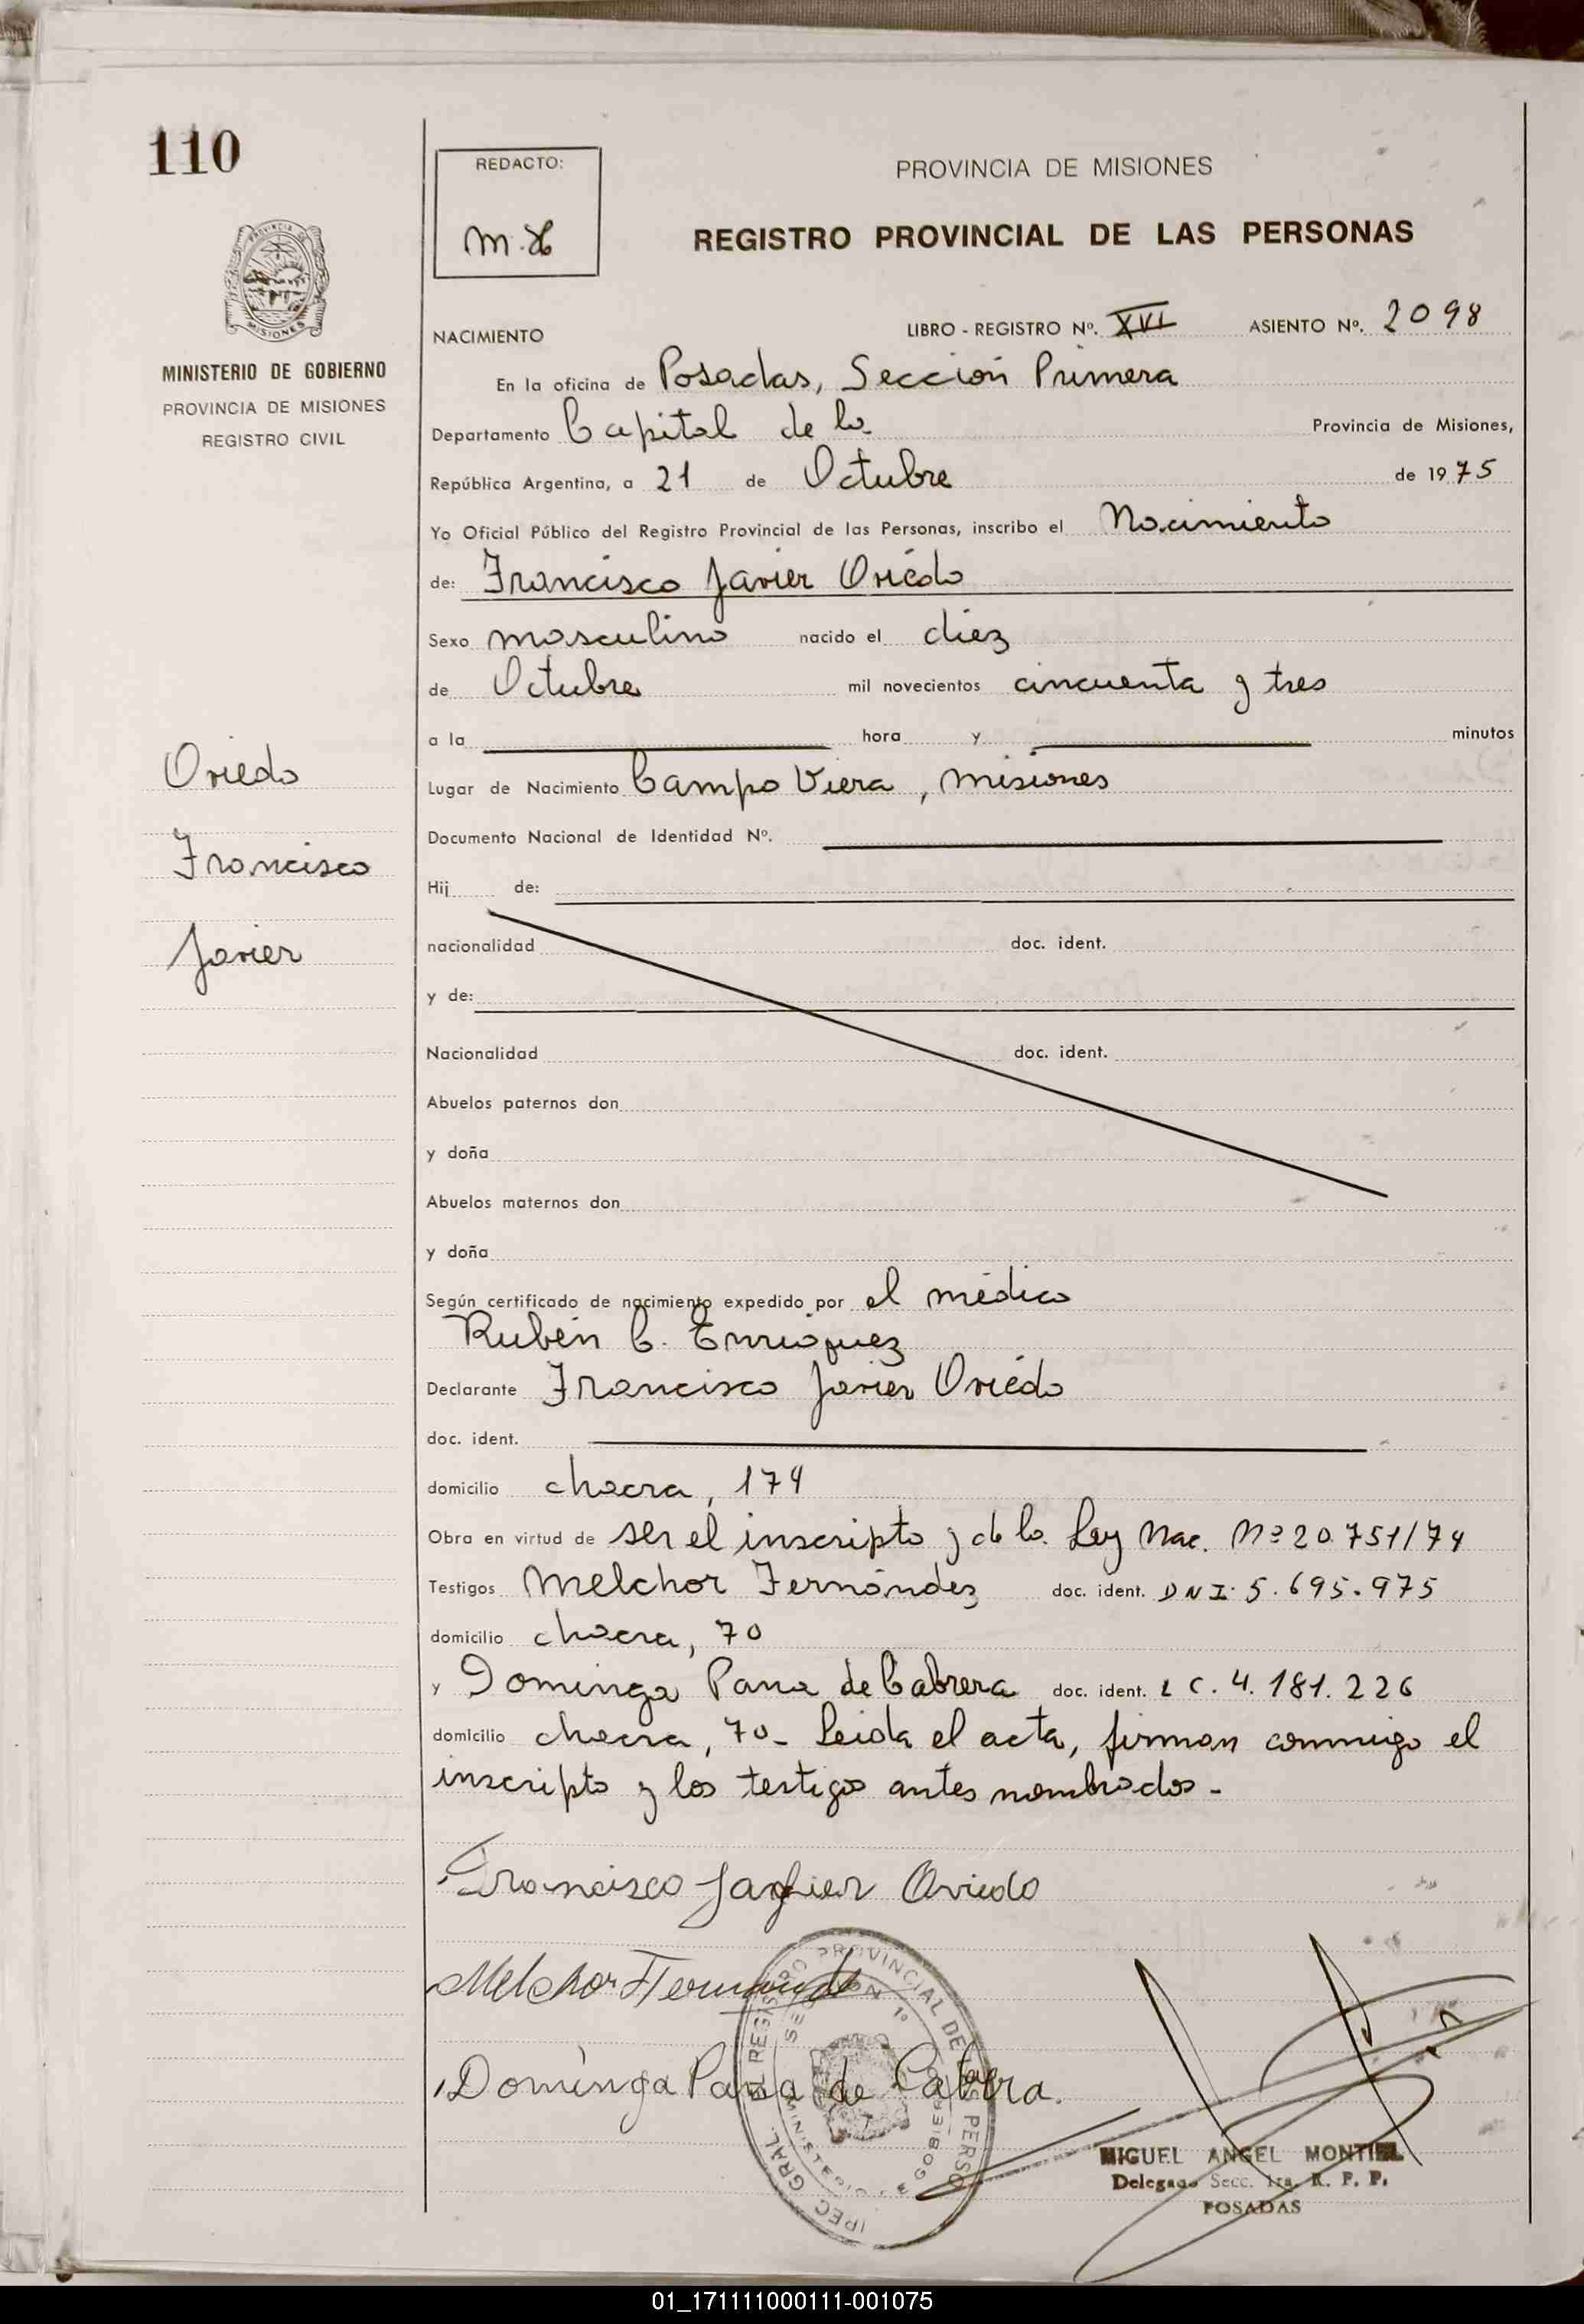 110
REDACTO:
M.H
PROVINCIA DE MISIONES
REGISTRO PROVINCIAL DE LAS PERSONAS
MISIONES
MINISTERIO DE GOBIERNO
PROVINCIA DE MISIONES
REGISTRO CIVIL
NACIMIENTO LIBRO - REGISTRO Nº. XVI ASIENTO Nº. 2098
En la oficina de Posadas, Sección Primera
Departamento Capital de la Provincia de Misiones,
República Argentina, a 21 de Octubre de 1975
Yo Oficial Público del Registro Provincial de las Personas, inscribo el Nacimiento
de: Francisco Javier Oviedo
Sexo masculino nacido el diez
de Octubre mil novecientos cincuenta y tres
a la hora y minutos
Oviedo
Francisco
Javier
Lugar de Nacimiento Campo Viera, Misiones
Documento Nacional de Identidad Nº.
Hij de:
nacionalidad doc. ident.
y de:
Nacionalidad doc. ident.
Abuelos paternos don
y doña
Abuelos maternos don
y doña
Según certificado de nacimiento expedido por el médico
Rubén C. Enriquez
Declarante Francisco Javier Oviedo
doc. ident.
domicilio chacra, 174
Obra en virtud de ser el inscripto y de la Ley Nac. Nº 20.751/74
Testigos Melchor Fernández doc. ident. DNI: 5.695.975
domicilio chacra, 70
y Dominga Pana de Cabrera doc. ident. L C. 4.181.226
domicilio chacra, 70- Leida el acta, firman conmigo el
inscripto y los testigos antes nombrados-
Francisco Javier Oviedo
Melchor Fernande
Dominga Pana de Cabrera.
MIGUEL ANGEL MONTIEL
Delegado Secc. 1ra. R. P. P.
POSADAS
01_171111000111-001075